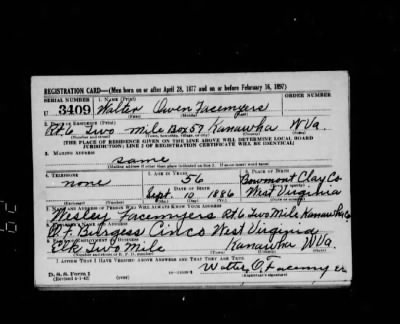 REGISTRATION CARD—(Men born on or after April 28, 1877 and on or before February 16, 1897)
SERIAL NUMBER 1. NAME (Print) ORDER NUMBER
U 3409 Walter Owen Facemyers
(First) (Middle) (Last)
2. PLACE OF RESIDENCE (Print)
Rt 6 Two Mile Box 57 Kanawha W Va.
(Number and street) (Town, township, village, or city) (County) (State)
[THE PLACE OF RESIDENCE GIVEN ON THE LINE ABOVE WILL DETERMINE LOCAL BOARD
JURISDICTION; LINE 2 OF REGISTRATION CERTIFICATE WILL BE IDENTICAL]
3. MAILING ADDRESS
same
[Mailing address if other than place indicated on line 2. If same insert word same]
4. TELEPHONE 5. AGE IN YEARS 6. PLACE OF BIRTH
none 56 Clay Co
DATE OF BIRTH
Sept. 10 1886 West Virginia
7. NAME AND ADDRESS OF PERSON WHO WILL ALWAYS KNOW YOUR ADDRESS
Wesley Facemyers Rt 6 Two Mile Kanawha Co
Burgess Cinco West Virginia
Elk Two Mile Kanawha W Va.
I AFFIRM THAT I HAVE VERIFIED ABOVE ANSWERS AND THAT THEY ARE TRUE.
D. S. S. Form 1
(Revised 4-1-42) (over)
Walter O. Facemyers
(Registrant's signature)